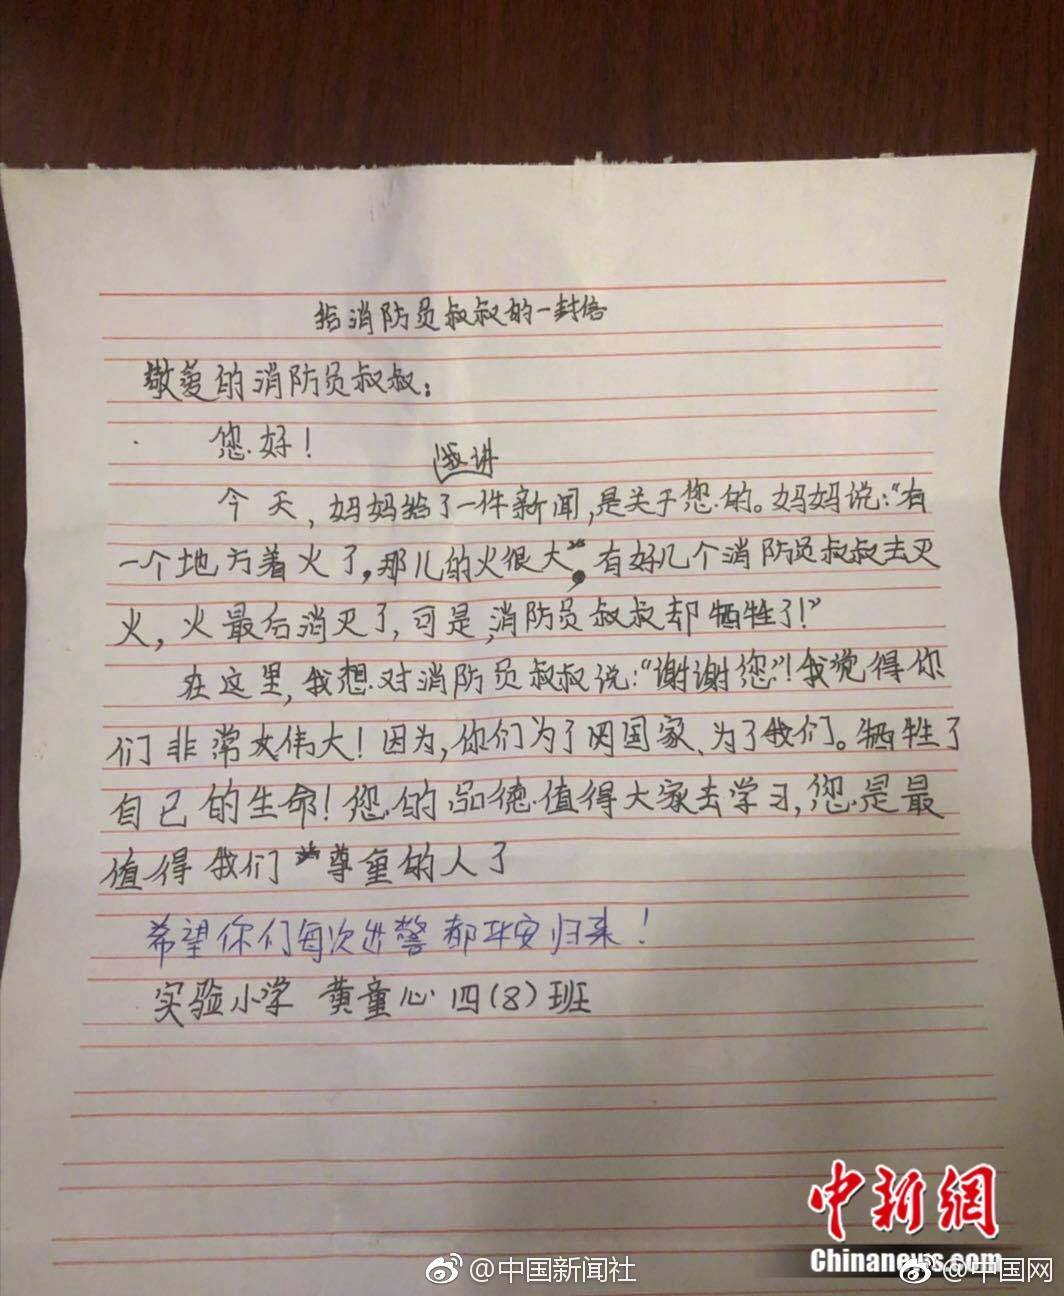 给消防员叔叔的一封信
敬爱的消防员叔叔：
您好！
我讲
今天，妈妈给了一件新闻，是关于您的。妈妈说：“有
一个地方着火了，那儿的火很大，有好几个消防员叔叔去灭
火，火最后消灭了，可是，消防员叔叔却牺牲了！”
在这里，我想对消防员叔叔说：“谢谢您”！我觉得你
们非常伟大！因为，你们为了国家、为了我们。牺牲了
自己的生命！您的品德值得大家去学习，您是最
值得我们尊重的人了
希望你们每次出警都平安归来！
实验小学 黄童心 四(8)班
中新网
Chinanews.com
@中国新闻社
@中国网